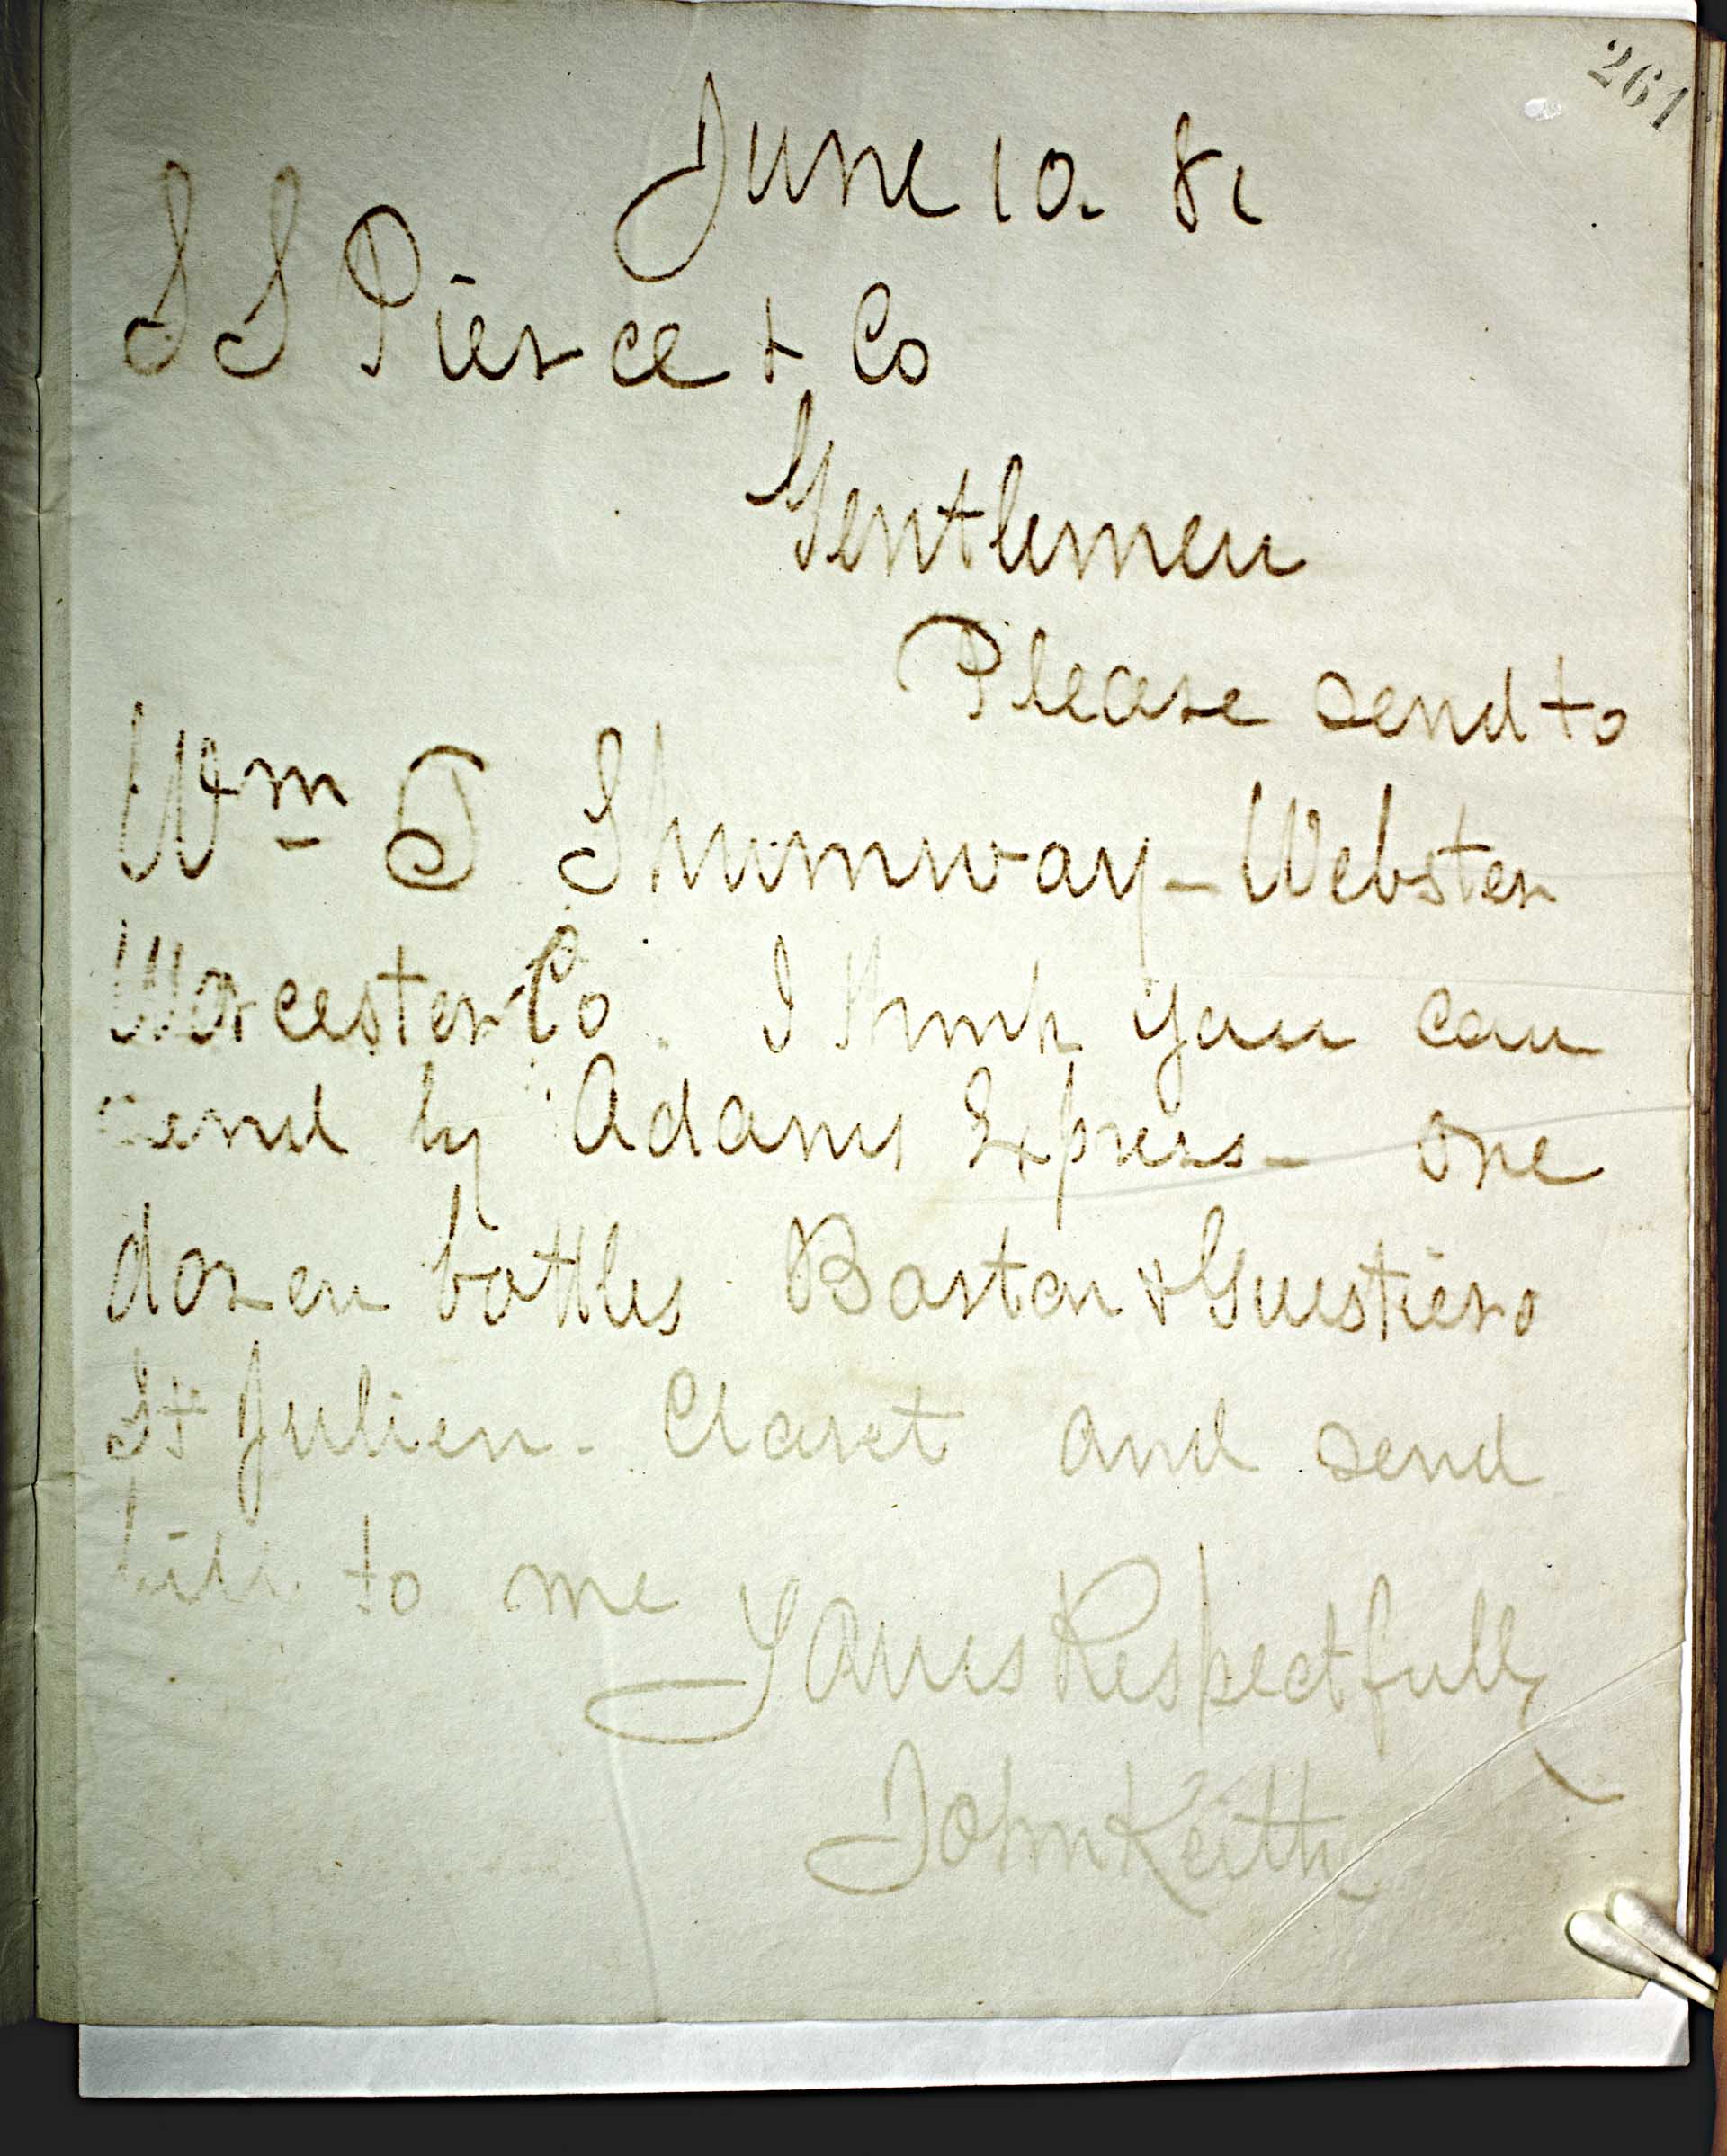 261
June 10. 81
S S Pierce + Co
Gentlemen
Please send to
Wm T Shumway - Webster
Worcester Co. I think you can
send by Adams Express - one
dozen bottles Barton & Guestiers
St Julien - Claret and send
bill to me
Yours Respectfully
John Keith